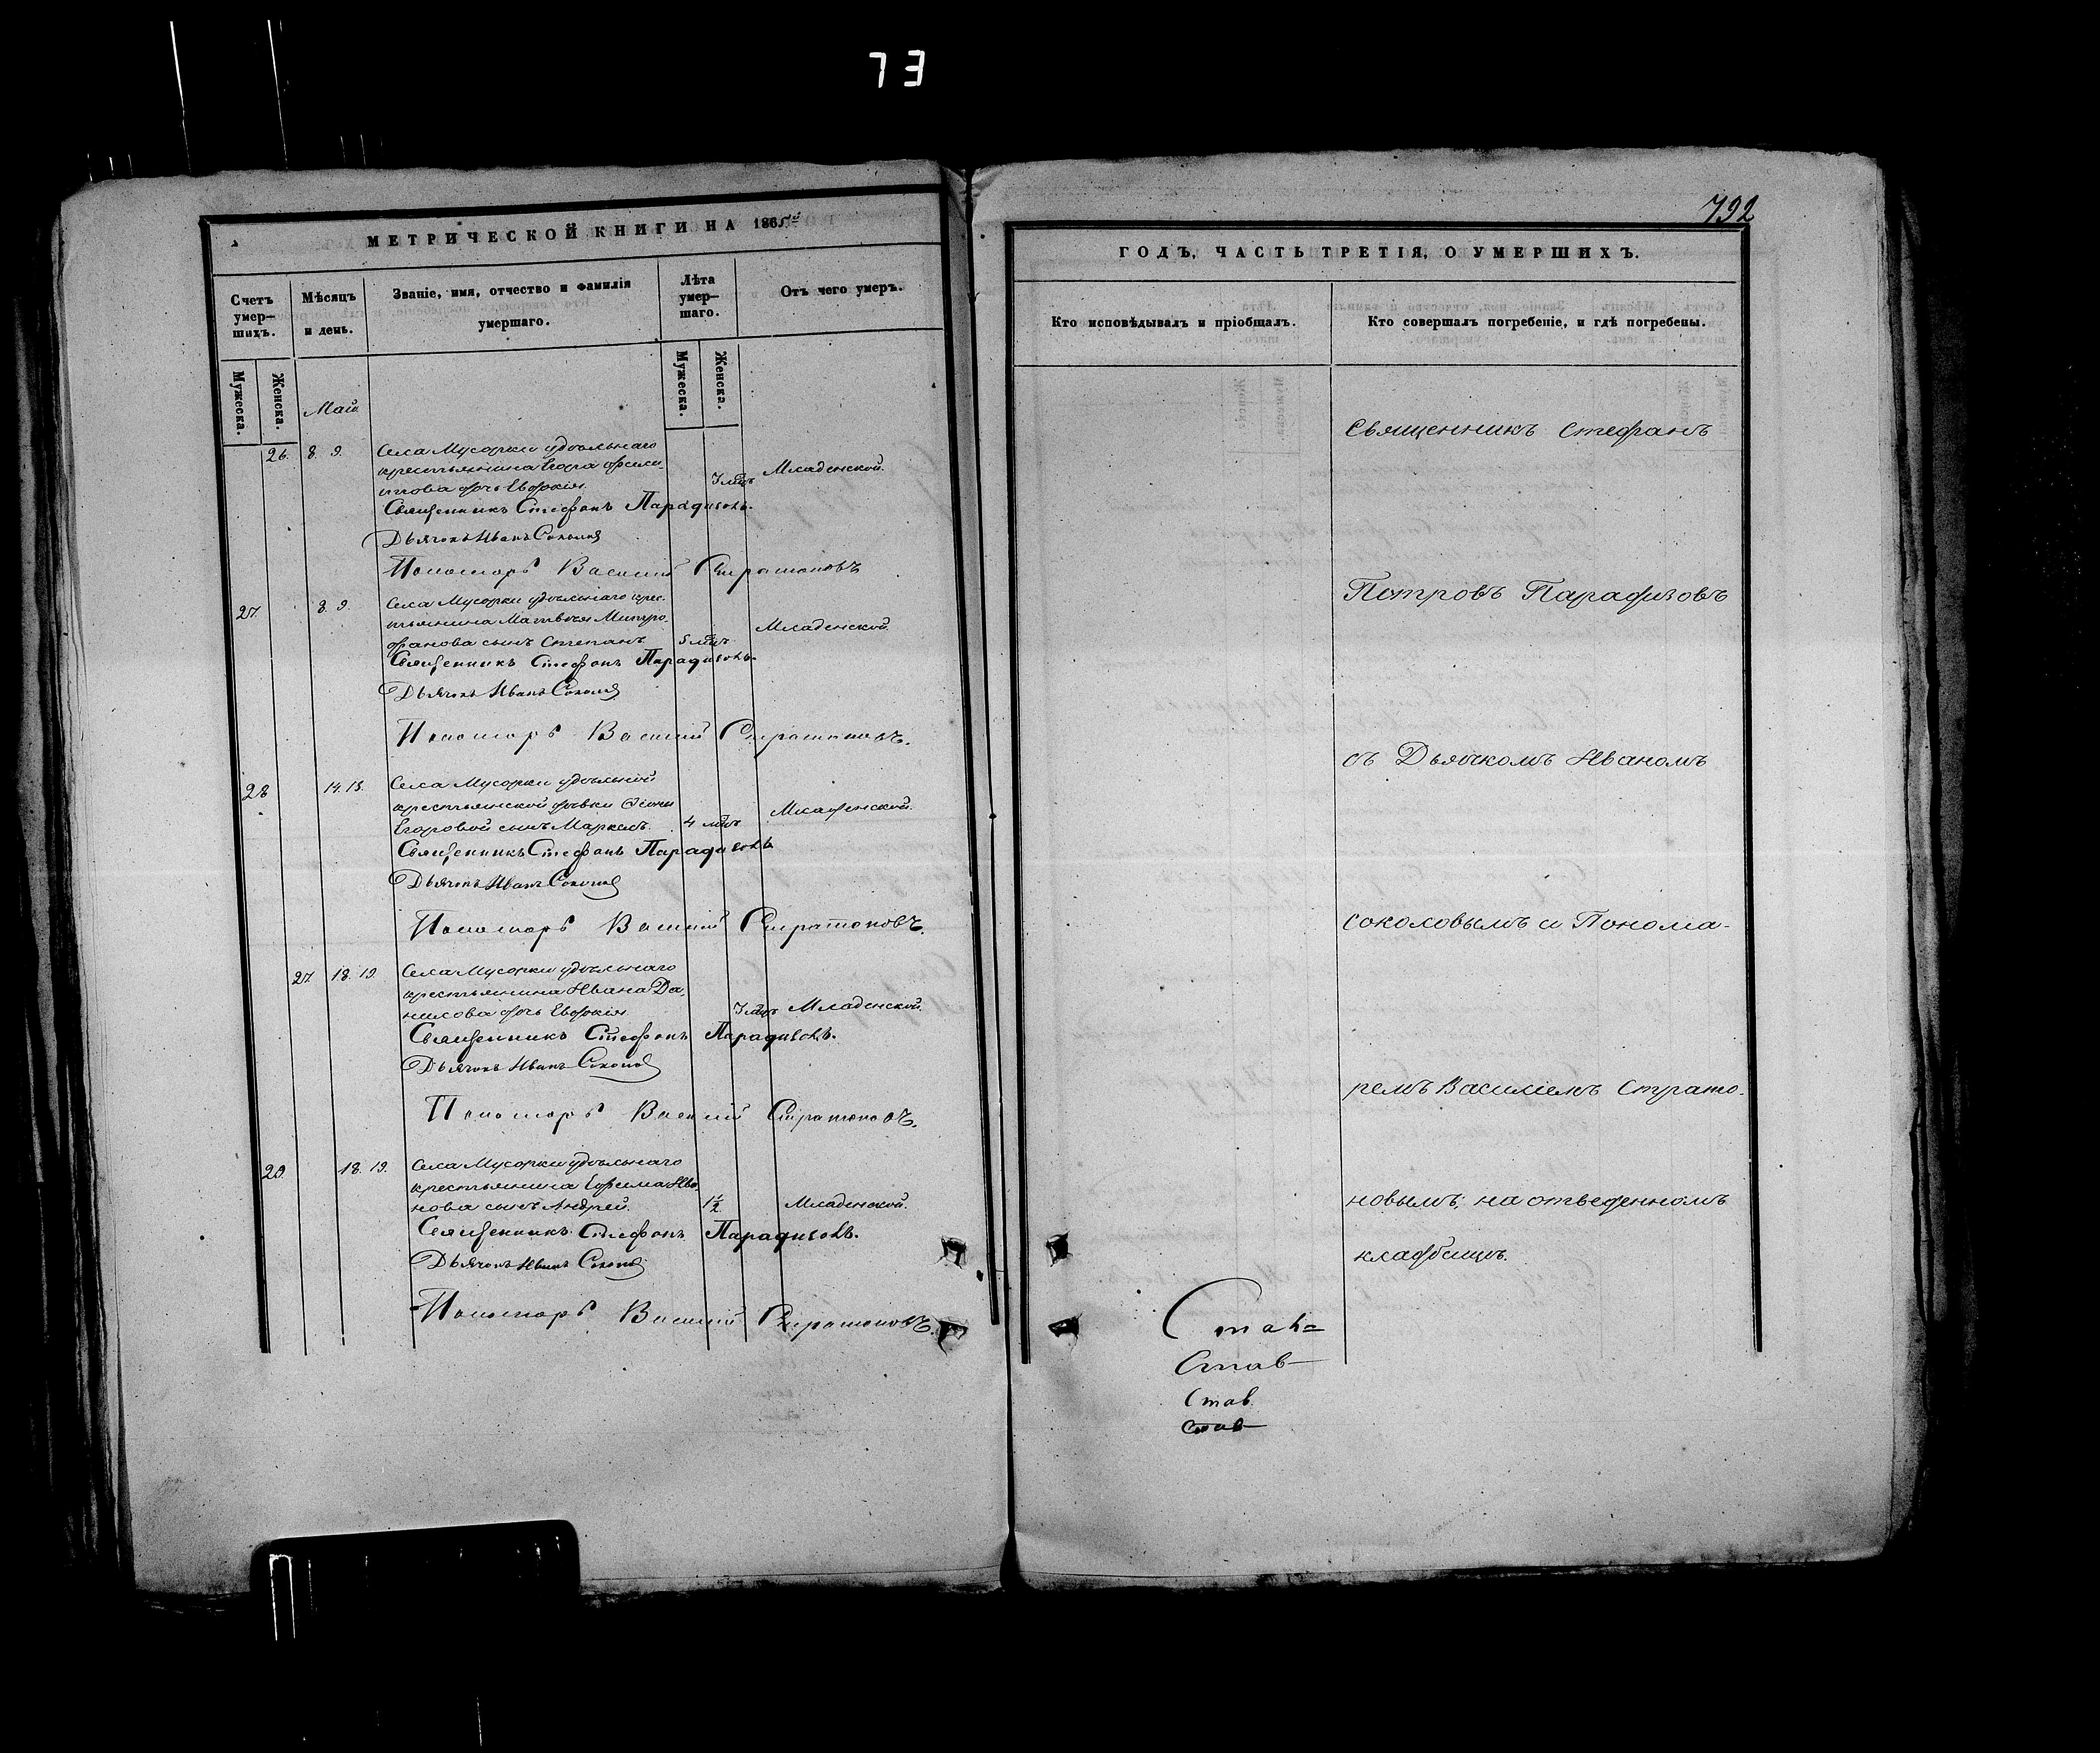 73
МЕТРИЧЕСКОЙ КНИГИ НА 1865й
Счетъ умер-шихъ.
Мѣсяцъ и день.
Званіе, имя, отчество и фамилія умершаго.
Лѣта умер-шаго.
Отъ чего умеръ.
Мужеска.
Женска.
Мужеска.
Женска.
Май
26. 8. 9. Села Мусорки удѣльнаго
крестьянина Егора Фили-
пова дочь Евдокія. 7 мѣц. Младенской.
Священникъ Стефанъ Парадизовъ.
Дьячокъ Иванъ Соколов
Пономарь Василий Стратоновъ
27. 8. 9. Села Мусорки удѣльнаго крес-
тьянина Матвѣя Митро-
фанова сынъ Степанъ 5 мѣц. Младенской.
Священникъ Стефанъ Парадизовъ.
Дьячокъ Иванъ Соколов
Пономарь Василий Стратоновъ.
28 14. 15. Села Мусорки удѣльной
крестьянской дѣвки
Егоровой сынъ Маркелъ. 4 мѣц. Младенской.
Священникъ Стефанъ Парадизовъ
Дьячокъ Иванъ Соколов
Пономарь Василий Стратоновъ.
27. 18. 19. Села Мусорки удѣльнаго
крестьянина Ивана Да-
нилова дочь Евдокія. Младенской.
Священникъ Стефанъ Парадизовъ.
Дьячокъ Иванъ Соколов
Пономарь Василий Стратоновъ.
29. 18. 19. Села Мусорки удѣльнаго
крестьянина Ефима Ива-
нова сынъ Андрей. 1½ Младенской.
Священникъ Стефанъ Парадизовъ.
Дьячокъ Иванъ Соколов
Пономарь Василий Стратоновъ.
792
ГОДЪ, ЧАСТЬ ТРЕТІЯ, О УМЕРШИХЪ.
Кто исповѣдывалъ и пріобщалъ.
Кто совершалъ погребеніе, и гдѣ погребены.
Священникъ Стефанъ
Петровъ Парадизовъ
съ Дьячкомъ Иваномъ
Соколовымъ и Понома-
ремъ Василіемъ Страто-
новымъ; на отведенномъ
кладбищѣ.
Став=
Став-
Став.
Став-